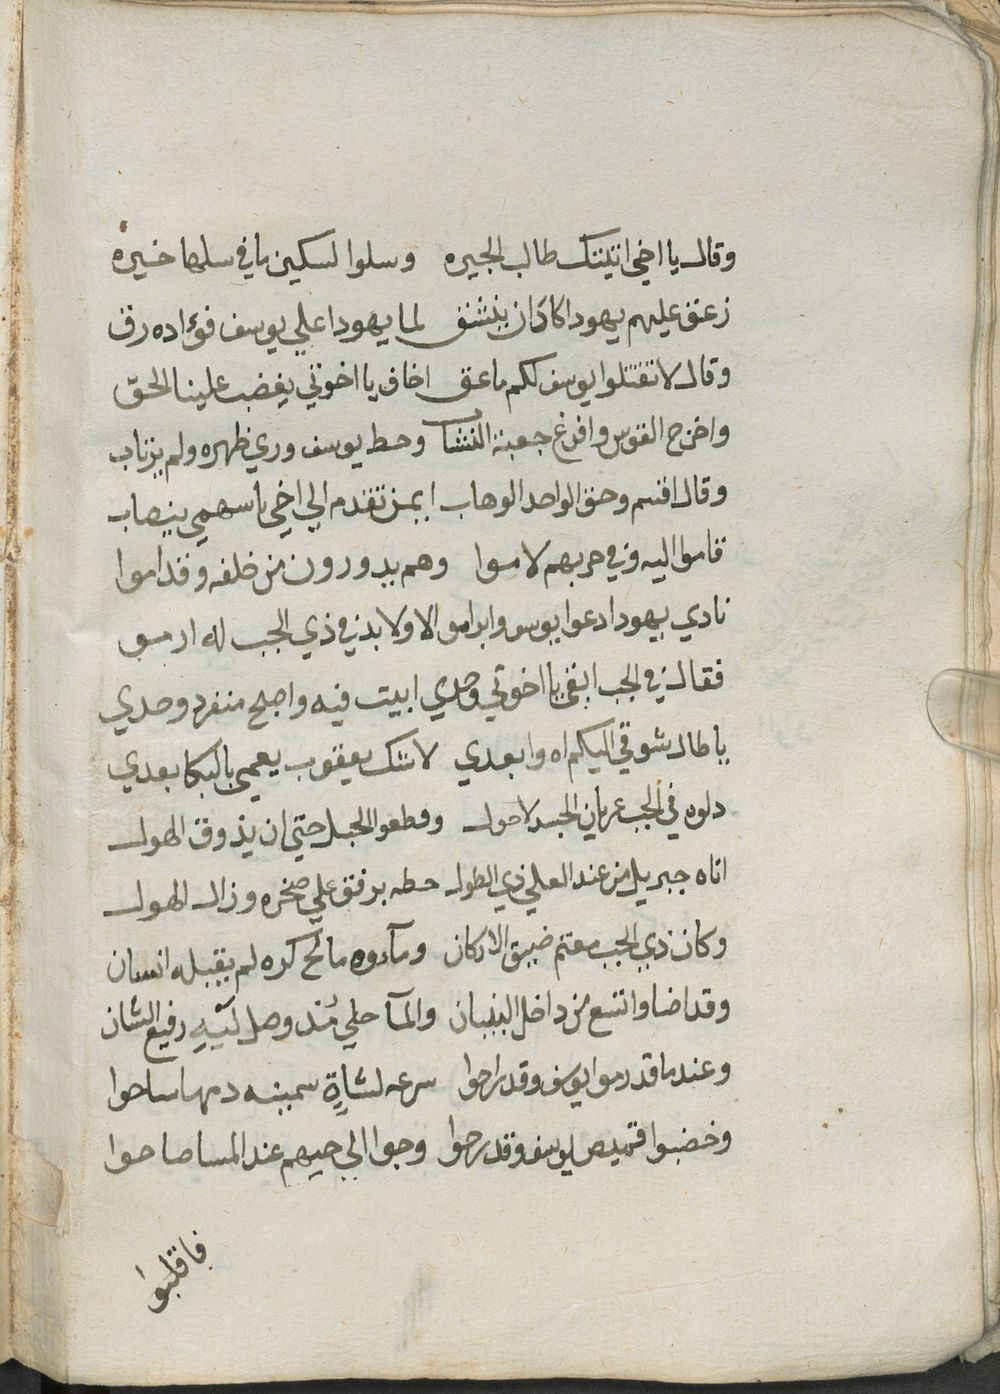 وقال يا اخي اتيتك طالب الجيره وسلوا لسكين ما في سلها خيره
زعق عليهم يهودا كادَ ان ينشق لما يهودا علي يوسف فؤاده رق
وقال لا تقتلوا يوسف لكم ما عق اخاف يا اخوتي يغضب علينا الحق
واخرج القوس وافرغ جعبة النشاب وحط يوسف وري ظهره ولم يرتاب
وقال اقسم وحق الواحد الوهاب ايمن تقدم الي اخي باسهمي ينصاب
قاموا اليه وفي حربهم لاموا وهم يدورون من خلفه وقداموا
نادي يهودا دعوا يوسف الا ولا بد في ذي الجب له
فقال في الجب ابقي يا اخوتي وحدي ابيت فيه واصبح منفرد وحدي
يا طال شوقي اليكم اه وا بعدي لا شك يعقوب يعمي بالبكا بعدي
دلوه في الجب عريان الجسد لا حول وقطعو الحبل حتي ان يذوق الهول
اتاه جبريل من عند العلي ذي الطول حطه برفق علي صخره وزال الهول
وكان ذي الجب معتم ضيق الاركان ومآءوه مالح كره لم يقبله انسان
وقد اضا واتسع من داخل البنيان والمآ حلي مُند وصل ليَّهِ رفيع الشان
وعندما قد رموا يوسف وقد راحوا سرعه لشاةٍ سمينه دمها ساحوا
وخضبوا قميص يوسف وقد رحوا وجوا الي حيهم عند المسا صاحوا
فاقلبوا